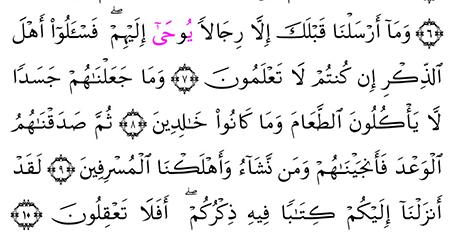 ﴿٦﴾ وَمَآ أَرْسَلْنَا قَبْلَكَ إِلَّا رِجَالاً يُوحَىٰٓ إِلَيْهِمْ ۖ فَسْـَٔلُوٓا۟ أَهْلَ
ٱلذِّكْرِ إِن كُنتُمْ لَا تَعْلَمُونَ ﴿٧﴾ وَمَا جَعَلْنَـٰهُمْ جَسَدًا
لَّا يَأْكُلُونَ ٱلطَّعَامَ وَمَا كَانُوا۟ خَـٰلِدِينَ ﴿٨﴾ ثُمَّ صَدَقْنَـٰهُمُ
ٱلْوَعْدَ فَأَنجَيْنَـٰهُمْ وَمَن نَّشَآءُ وَأَهْلَكْنَا ٱلْمُسْرِفِينَ ﴿٩﴾ لَقَدْ
أَنزَلْنَآ إِلَيْكُمْ كِتَـٰبًا فِيهِ ذِكْرُكُمْ ۖ أَفَلَا تَعْقِلُونَ ﴿١٠﴾